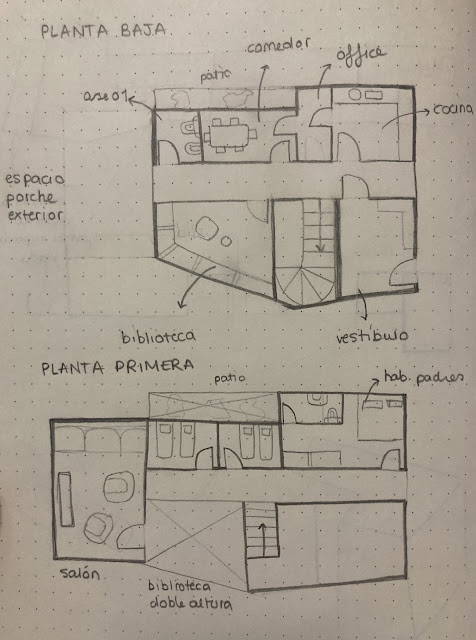 PLANTA BAJA
comedor
office
patio
aseo1
cocina
espacio
porche
exterior
biblioteca
vestíbulo
PLANTA PRIMERA
patio
hab. padres
salón
biblioteca
doble altura